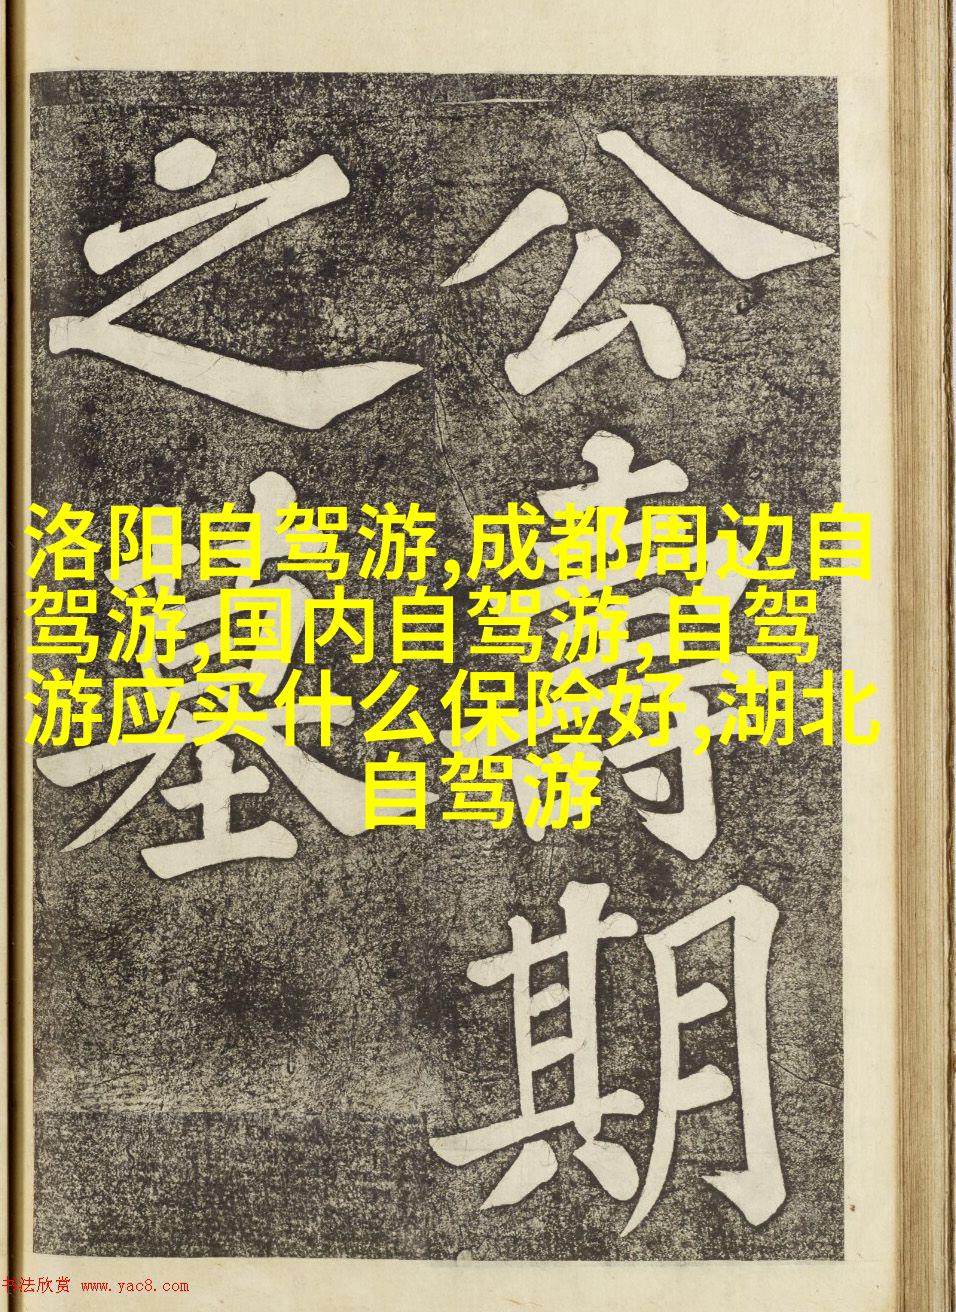 公壽期
之墓
洛阳自驾游,成都周边自
驾游,国内自驾游,自驾
游应买什么保险好,湖北
自驾游
书法欣赏 www.yac8.com